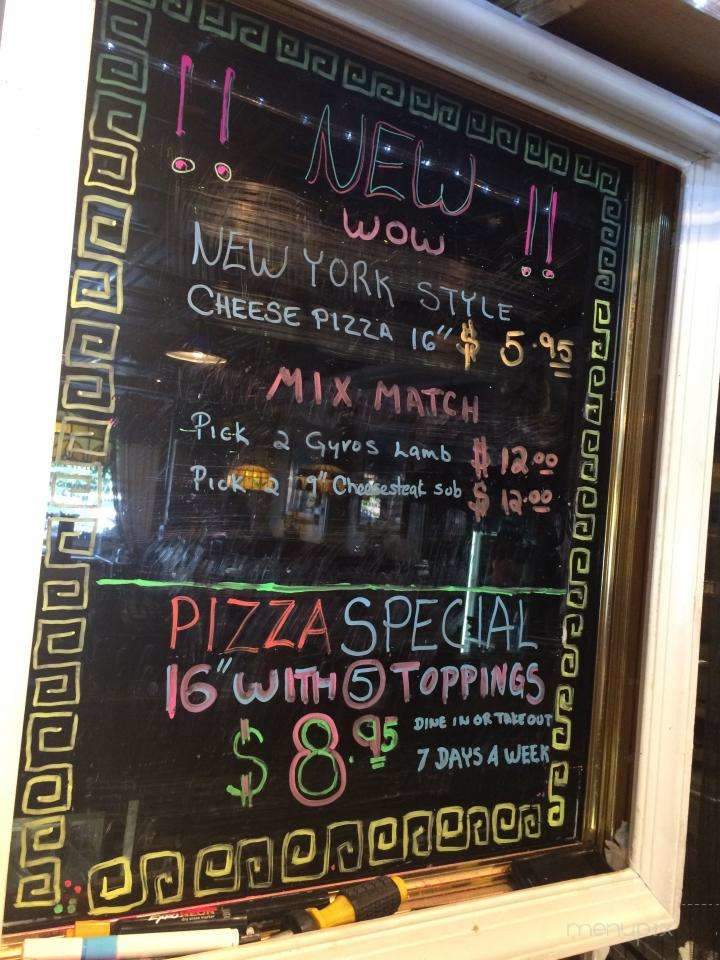 !! NEW !!
WOW
NEW YORK STYLE
CHEESE PIZZA 16" $ 5.95
MIX MATCH
Pick 2 Gyros Lamb $ 12.00
Pick 2 9" Cheesesteak sub $ 12.00
PIZZA SPECIAL
16" WITH 5 TOPPINGS
$ 8.95 DINE IN OR TAKE OUT
7 DAYS A WEEK
EXPO NEON
menupix